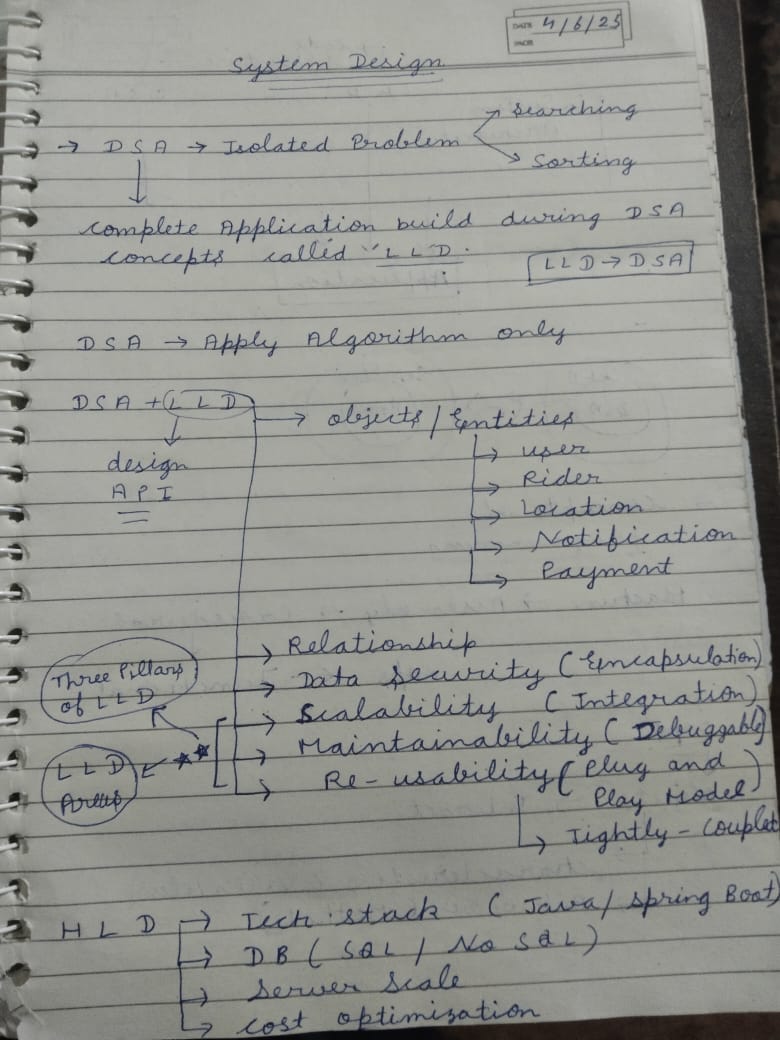 DATE 4/6/25
PAGE
System Design
→ DSA → Isolated Problem
→ Searching
→ Sorting
↓
complete Application build during DSA
concepts called "LLD.
LLD → DSA
DSA → Apply Algorithm only
DSA + LLD
→ objects / Entities
↓
design
API
→ user
→ Rider
→ Location
→ Notification
→ Payment
→ Relationship
→ Data Security (Encapsulation)
→ Scalability (Integration)
→ Maintainability (Debuggable)
→ Re-usability (Plug and
Play Model)
→ Tightly - Couplet
Three Pillars
of LLD
LLD
HLD → Tech stack (Java/ Spring Boot)
→ DB (SQL / No SQL)
→ Server Scale
→ cost optimization